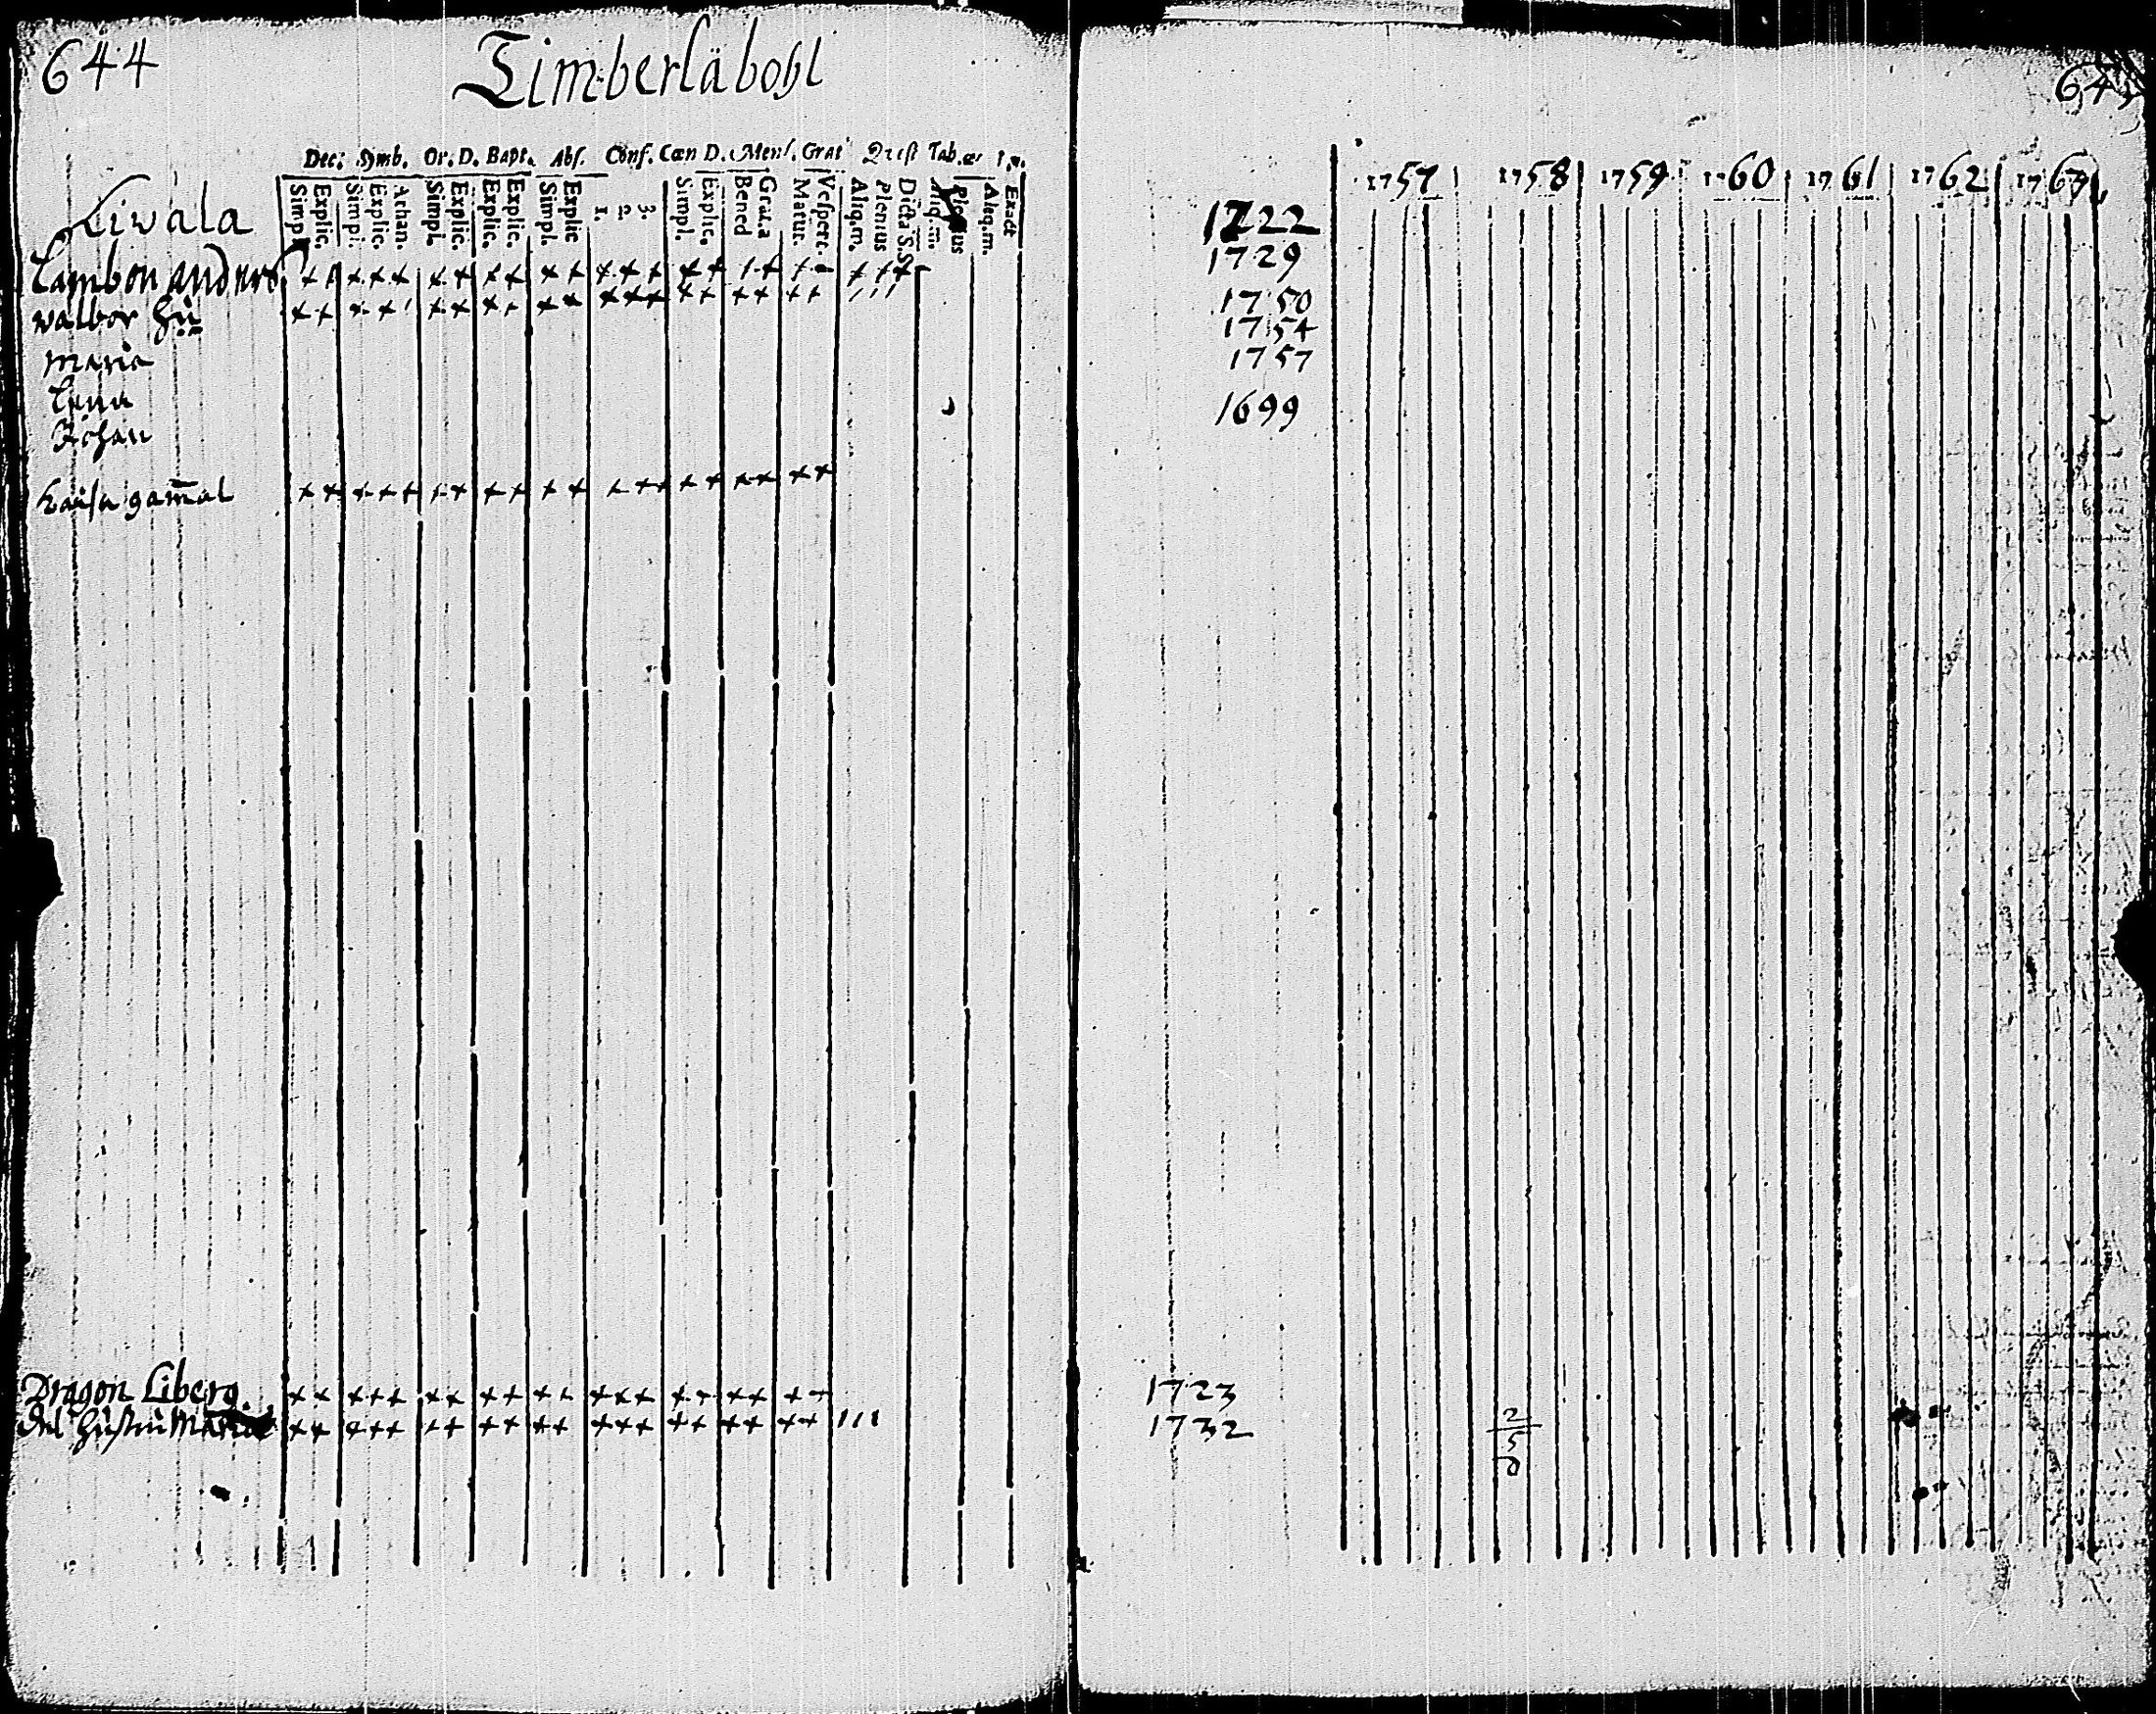 644
Timberlä bohl
Dec: Symb. Or. D. Bapt. Abs. Conf. Cœn D. Mens. Grat Quæst Tab. œc
Simpl. Explic. Simpl. Explic. Athan. Simpl. Explic. Explic. Explic. Simpl. Explic 1. 2. 3. Simpl. Explic. Bened Grat.a Matut. Vespert. Aliq.m. Plenius Dicta S.S. Aliq.m. Plenius Aliq.m. Exacte
Liwala
Lambon anders
walbor hu
maria
Lena
Johan
Kaisa gam̄al
Dragon Liberg.
del hustru Maria
645
1757 1758 1759 1760 1761 1762 1763
1722
1729
1750
1754
1757
1699
1723
1732
2
5